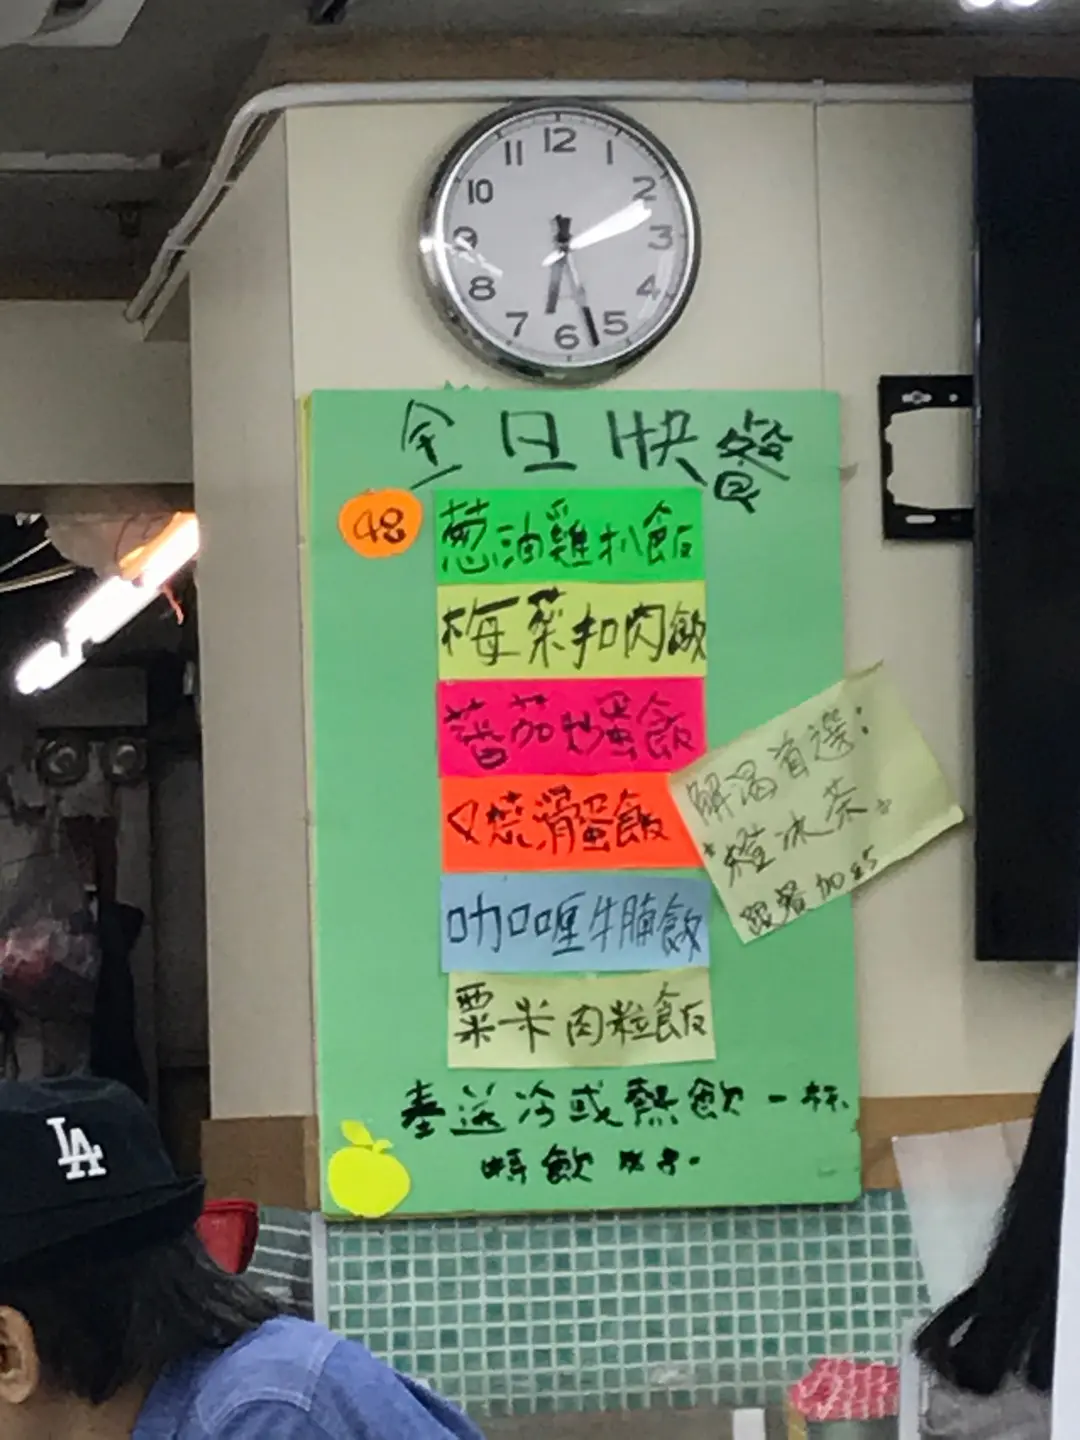 12
1
2
3
4
5
6
7
8
9
10
11
全日快餐
48
葱油雞扒飯
梅菜扣肉飯
蕃茄炒蛋飯
叉燒滑蛋飯
咖喱牛腩飯
粟米肉粒飯
解渴首選:
冰茶
跟餐加
奉送冷或熱飲一杯
飲
LA